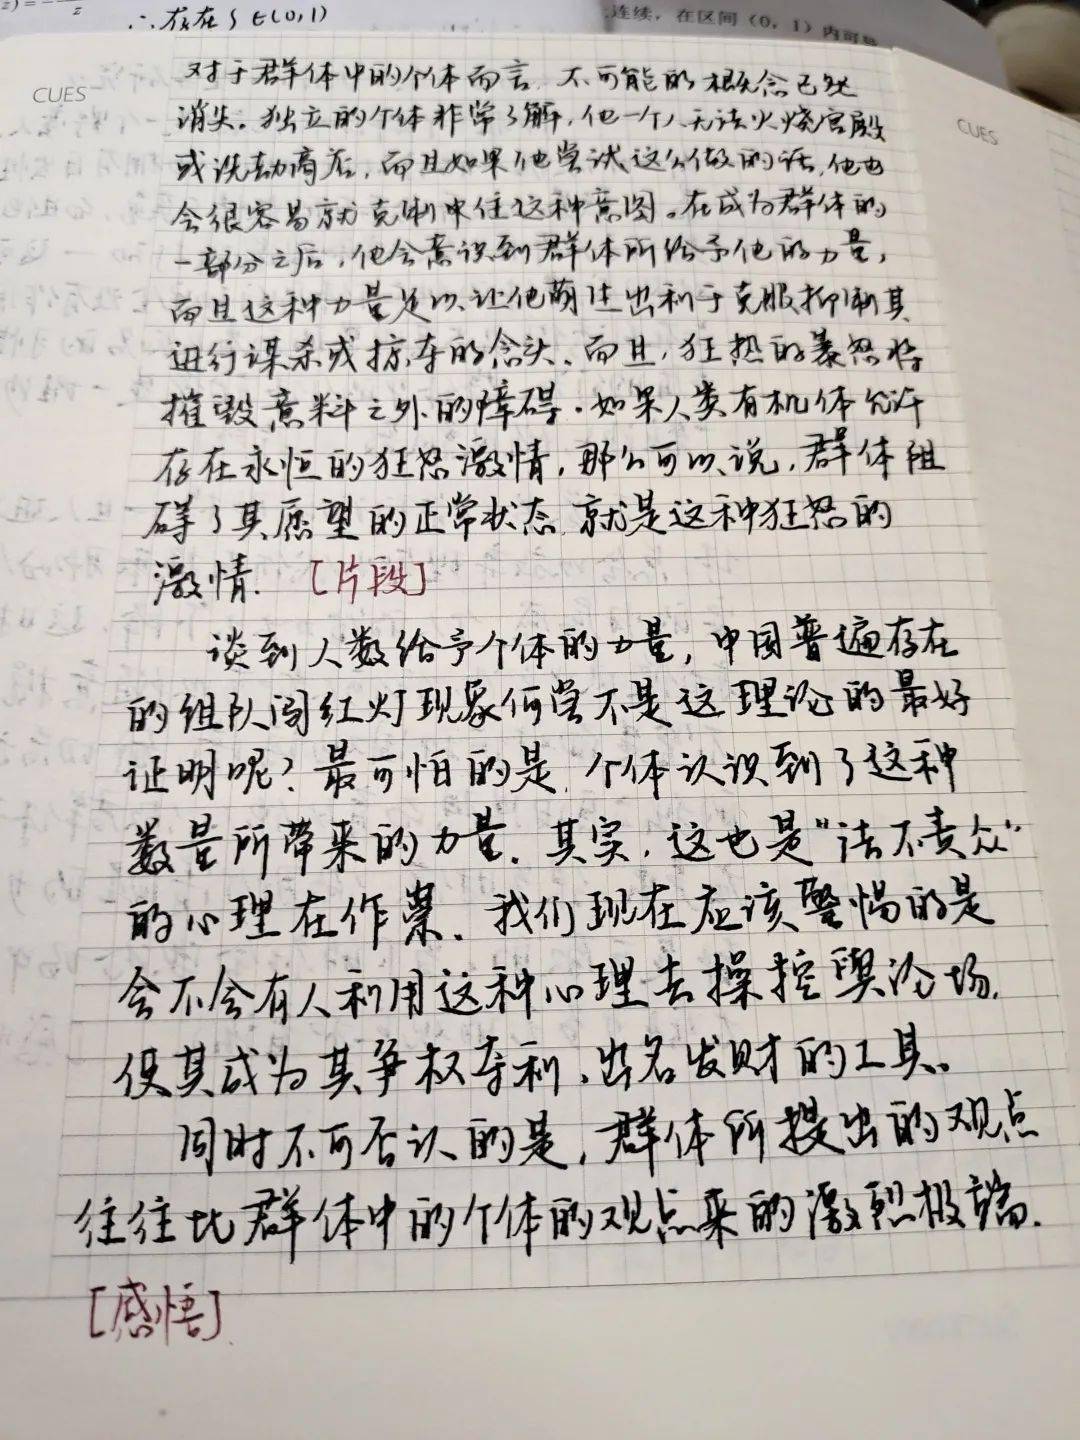 ∴存在ξ∈(0,1)
连续，在区间（0，1）内可导
CUES
CUES
对于群体中的个体而言，不可能的概念已然
消失。独立的个体非常了解，他一个人无法火烧宫殿
或洗劫商店，而且如果他尝试这么做的话，他也
会很容易就克制住这种意图。在成为群体的
一部分之后，他会意识到群体所给予他的力量，
而且这种力量足以让他萌生出利于克服抑制其
进行谋杀或掠夺的念头。而且，狂热的暴怒将
摧毁意料之外的障碍。如果人类有机体允许
存在永恒的狂怒激情，那么可以说，群体阻
碍了其愿望的正常状态，就是这种狂怒的
激情. [片段]
谈到人数给予个体的力量，中国普遍存在
的组队闯红灯现象何尝不是这理论的最好
证明呢？最可怕的是，个体认识到了这种
数量所带来的力量. 其实，这也是“法不责众”
的心理在作祟. 我们现在应该警惕的是
会不会有人利用这种心理去操控舆论场，
使其成为其争权夺利、出名发财的工具。
同时不可否认的是，群体所提出的观点
往往比群体中的个体的观点来的激烈极端.
[感悟]